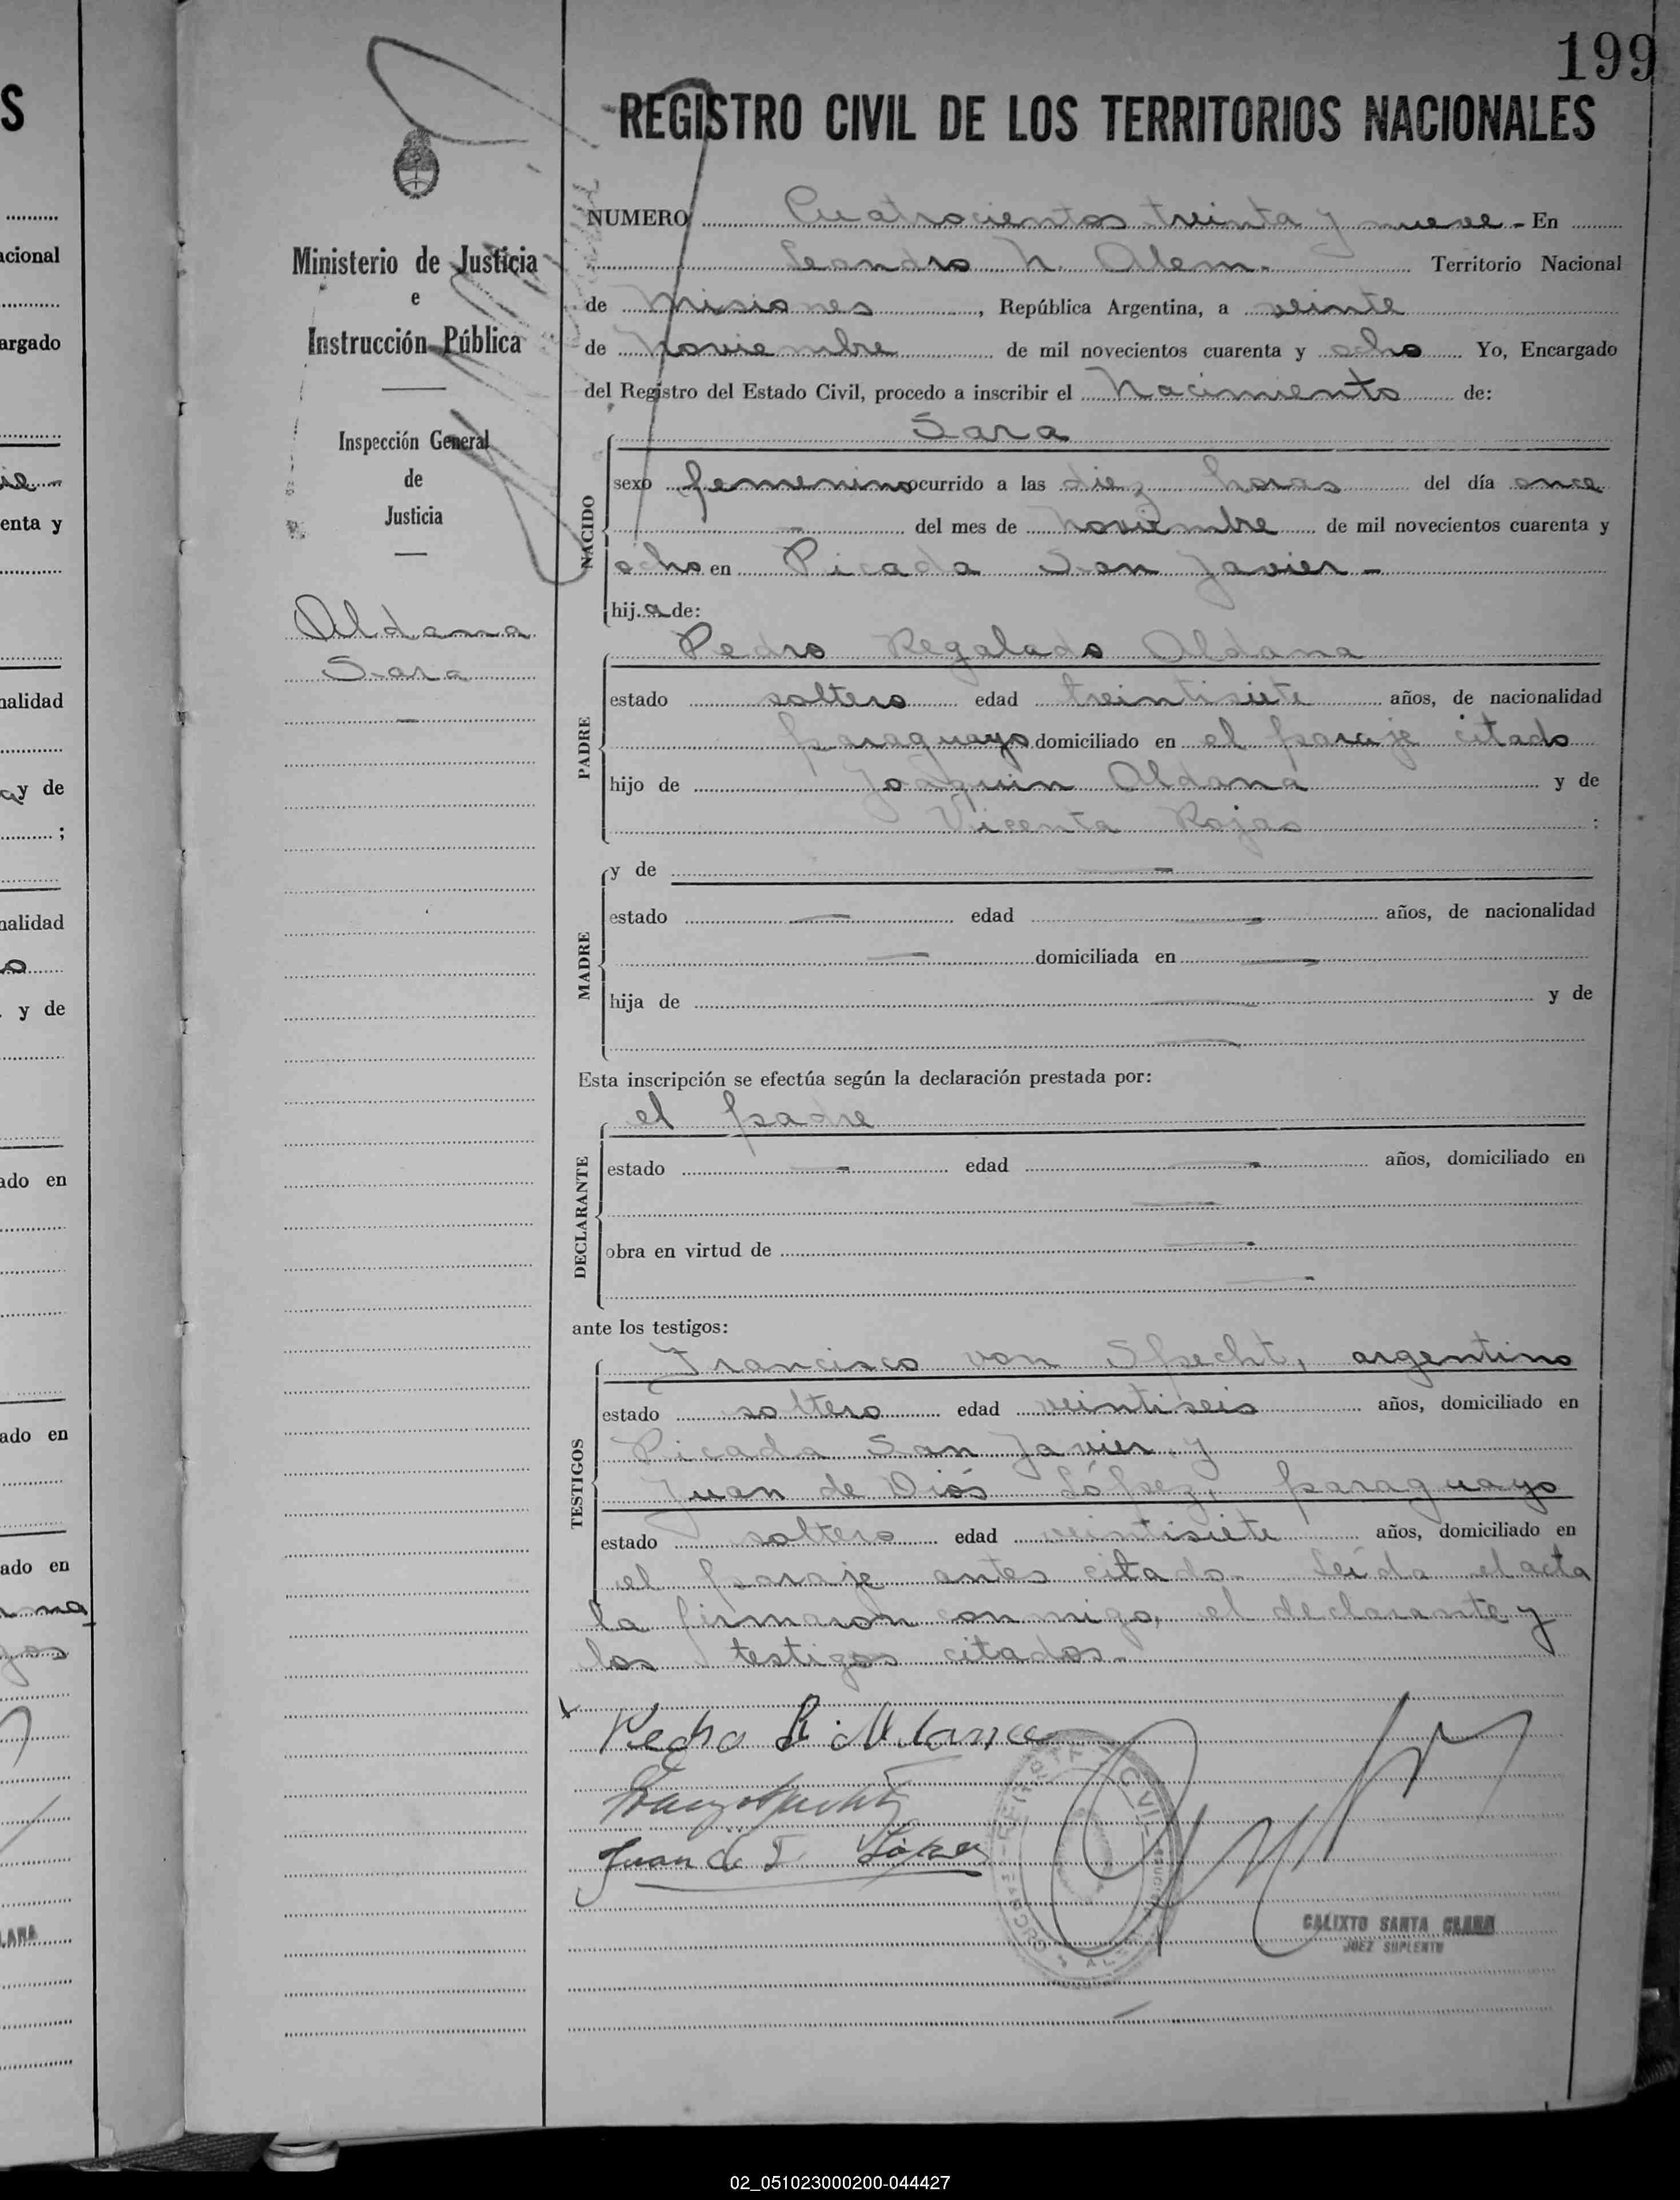 199
REGISTRO CIVIL DE LOS TERRITORIOS NACIONALES
Ministerio de Justicia
e
Instrucción Pública
Inspección General
de
Justicia
Aldana
Sara
NUMERO Cuatrocientos treinta y nueve - En
Leandro N. Alem. Territorio Nacional
de Misiones, República Argentina, a veinte
de Noviembre de mil novecientos cuarenta y ocho Yo, Encargado
del Registro del Estado Civil, procedo a inscribir el Nacimiento de:
NACIDO
Sara
sexo femenino ocurrido a las diez horas del día once
- del mes de Noviembre de mil novecientos cuarenta y
ocho en Picada San Javier -
hij a de:
PADRE
Pedro Regalado Aldana
estado soltero edad treintisiete años, de nacionalidad
paraguayo domiciliado en el paraje citado
hijo de Joaquin Aldana y de
Vicenta Rojas :
MADRE
y de -
estado - edad - años, de nacionalidad
- domiciliada en -
hija de - y de
-
Esta inscripción se efectúa según la declaración prestada por:
DECLARANTE
el padre
estado - edad - años, domiciliado en
-
obra en virtud de -
-
ante los testigos:
TESTIGOS
Francisco von Specht, argentino
estado soltero edad veintiseis años, domiciliado en
Picada San Javier y
Juan de Diós López, paraguayo
estado soltero edad veintisiete años, domiciliado en
el paraje antes citado - Leída el acta
la firmaron conmigo, el declarante y
los testigos citados -
Pedro R. Aldana
Juan de D. López
CALIXTO SANTA CLARA
JUEZ SUPLENTE
S
acional
argado
enta y
nalidad
y de
;
nalidad
y de
ado en
ado en
ado en
LARA
02_051023000200-044427